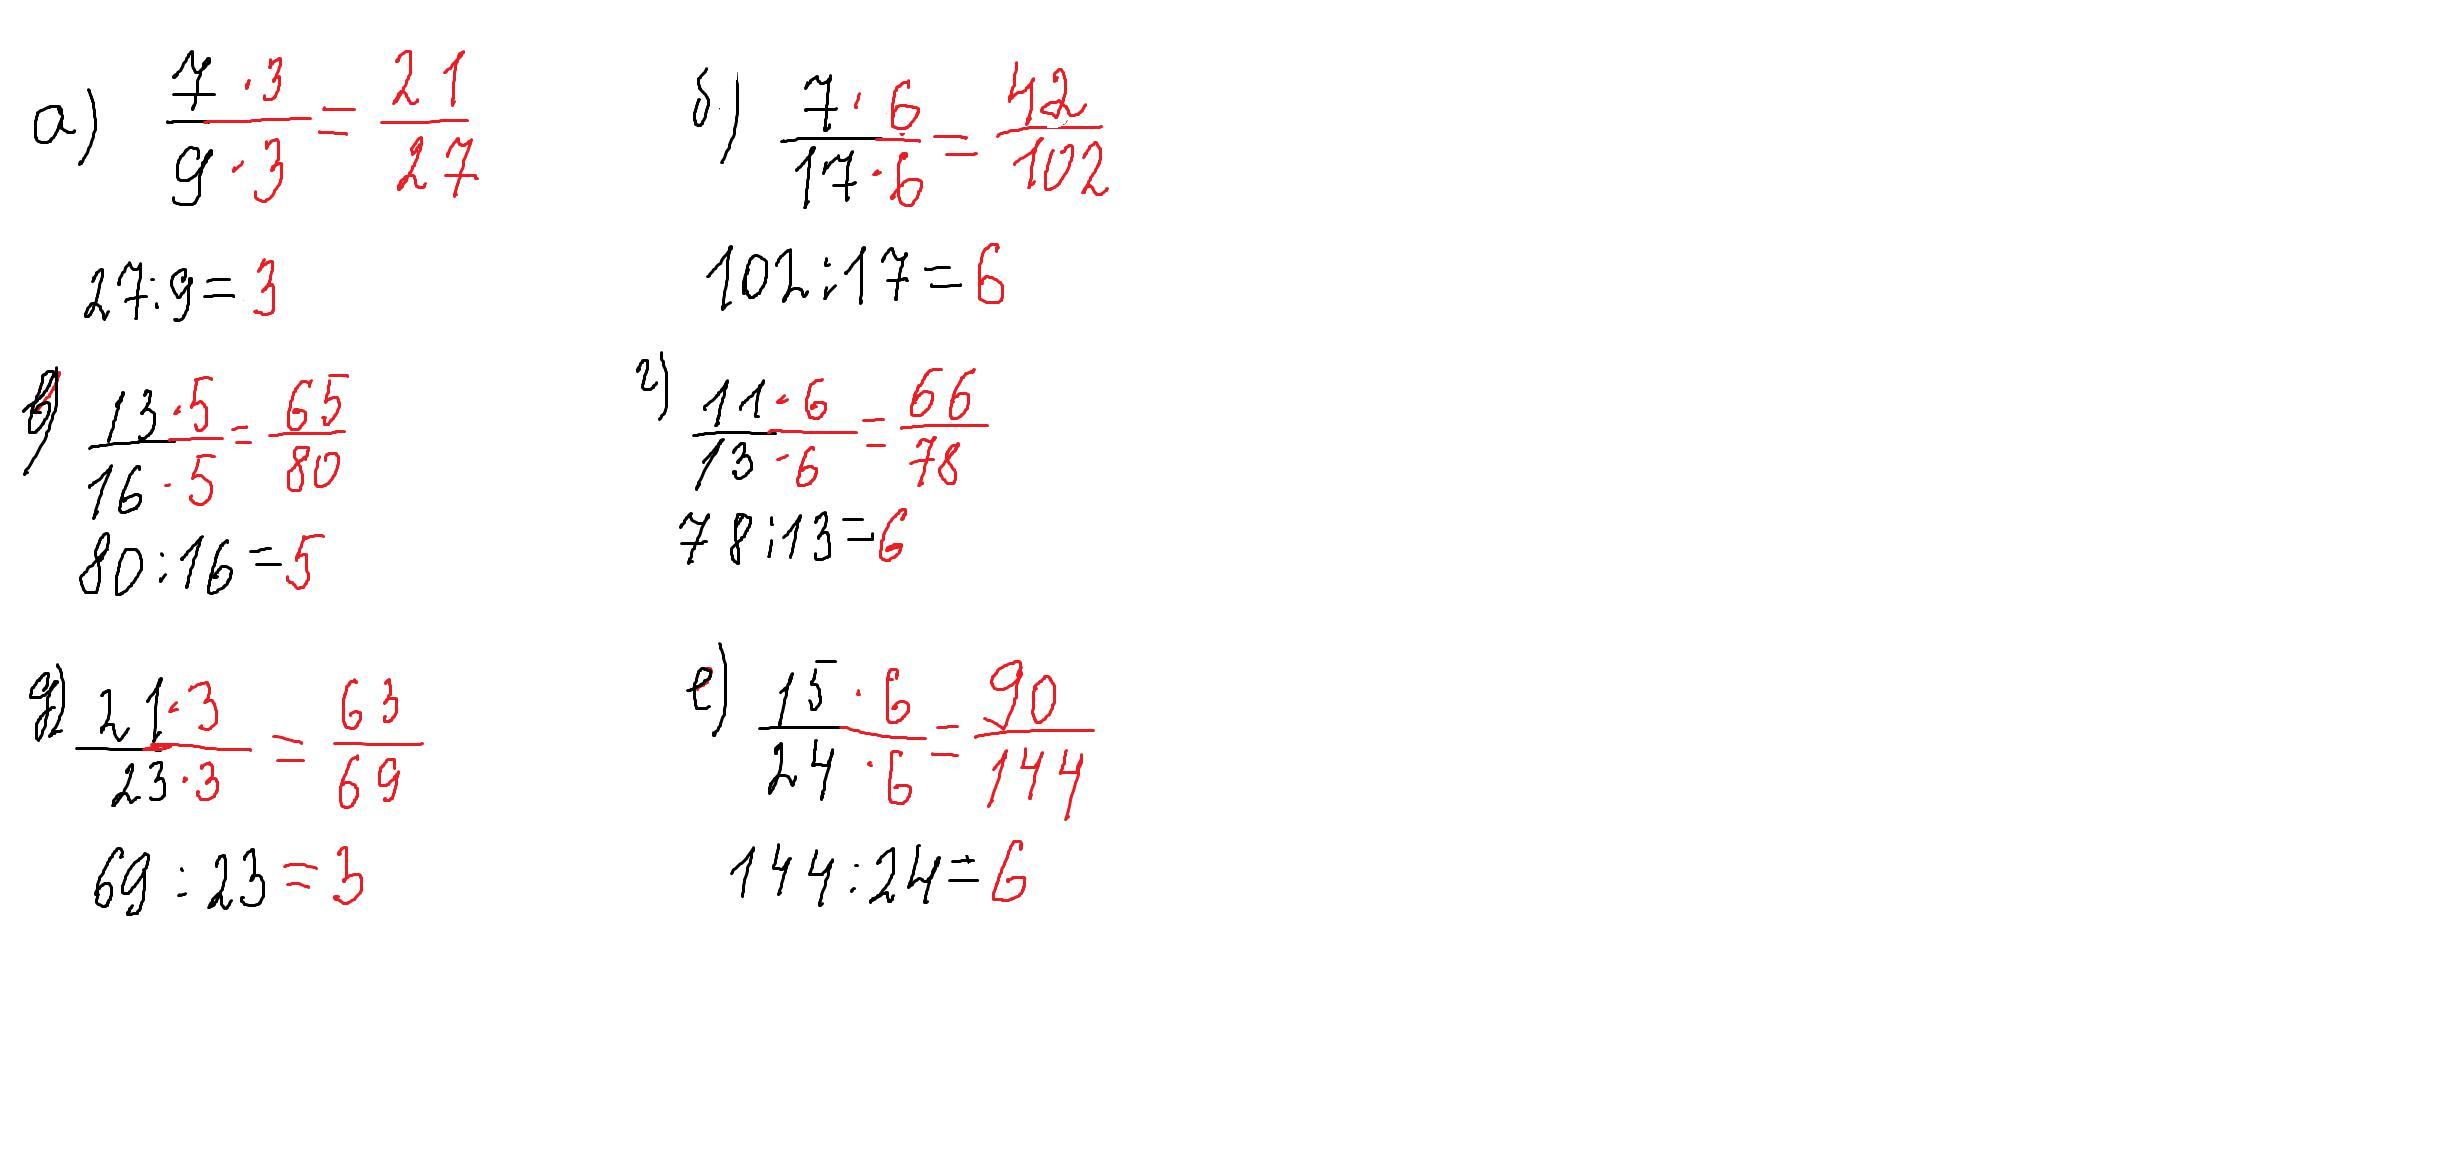 а) 7 · 3 / 9 · 3 = 21 / 27
27 : 9 = 3
б) 7 · 6 / 17 · 6 = 42 / 102
102 : 17 = 6
в) 13 · 5 / 16 · 5 = 65 / 80
80 : 16 = 5
г) 11 · 6 / 13 · 6 = 66 / 78
78 : 13 = 6
д) 21 · 3 / 23 · 3 = 63 / 69
69 : 23 = 3
е) 15 · 6 / 24 · 6 = 90 / 144
144 : 24 = 6